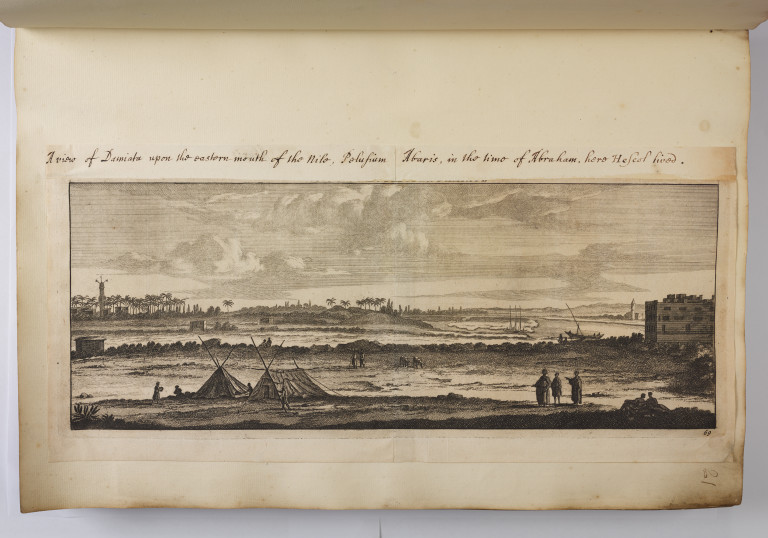 A view of Damiata upon the eastern mouth of the Nile, Pelusium Abaris, in the time of Abraham, here Hescol lived.
69